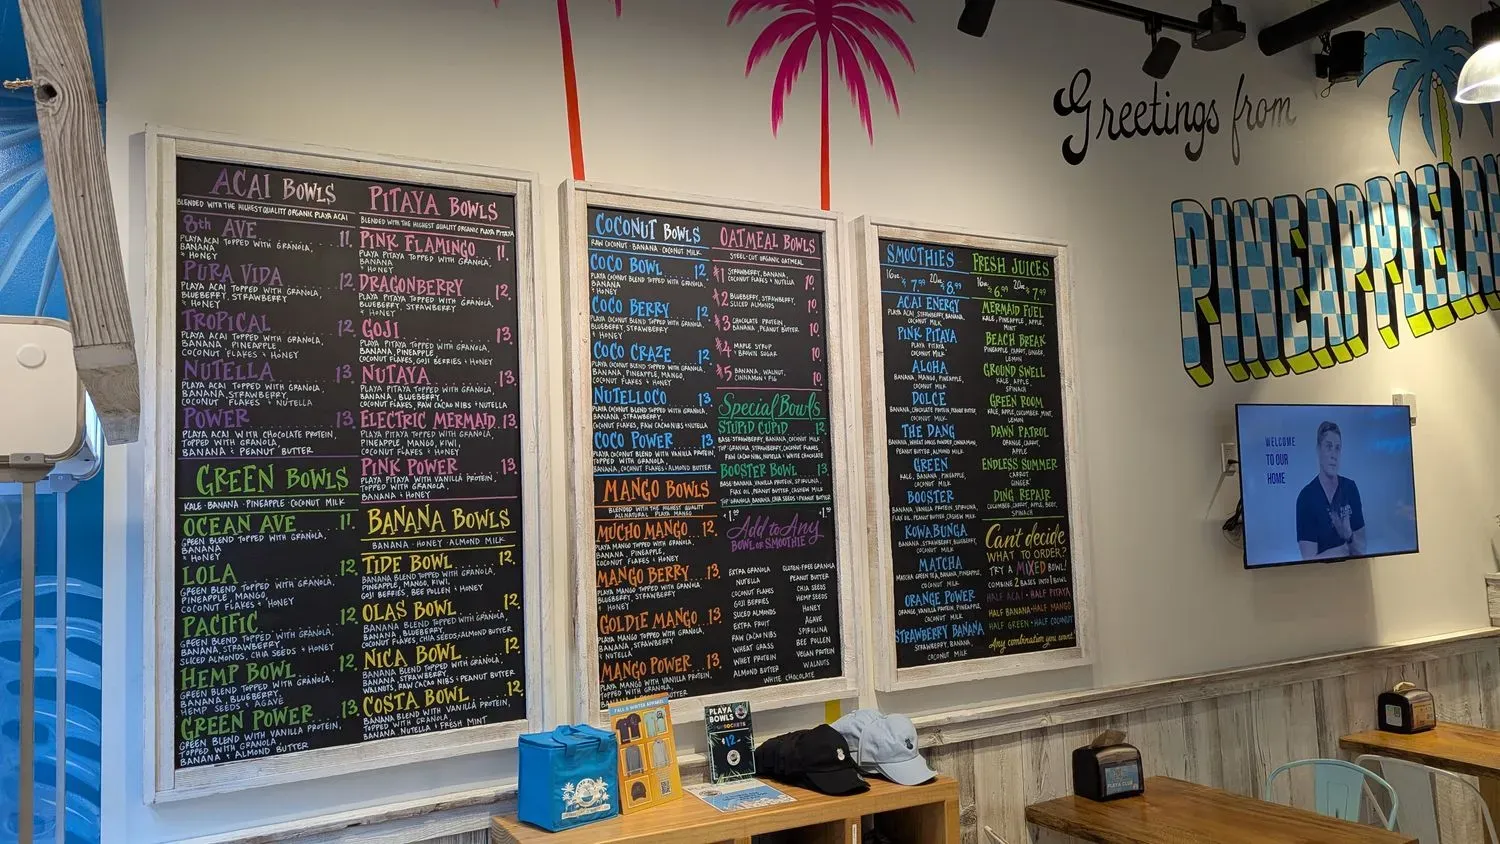 ACAI BOWLS
BLENDED WITH THE HIGHEST QUALITY ORGANIC PLAYA ACAI
8th AVE 11.
PLAYA ACAI TOPPED WITH GRANOLA,
BANANA
+ HONEY
PURA VIDA 12
PLAYA ACAI TOPPED WITH GRANOLA,
BLUEBERRY, STRAWBERRY
+ HONEY
TROPICAL 12
PLAYA ACAI TOPPED WITH GRANOLA,
BANANA, PINEAPPLE
COCONUT FLAKES + HONEY
NUTELLA 13
PLAYA ACAI TOPPED WITH GRANOLA,
BANANA, STRAWBERRY,
COCONUT FLAKES + NUTELLA
POWER 13
PLAYA ACAI WITH CHOCOLATE PROTEIN,
TOPPED WITH GRANOLA,
BANANA + PEANUT BUTTER
GREEN BOWLS
KALE · BANANA · PINEAPPLE · COCONUT MILK
OCEAN AVE 11.
GREEN BLEND TOPPED WITH GRANOLA,
BANANA
+ HONEY
LOLA 12
GREEN BLEND TOPPED WITH GRANOLA,
PINEAPPLE, MANGO,
COCONUT FLAKES + HONEY
PACIFIC 12
GREEN BLEND TOPPED WITH GRANOLA,
BANANA, STRAWBERRY,
SLICED ALMONDS, CHIA SEEDS + HONEY
HEMP BOWL 12
GREEN BLEND TOPPED WITH GRANOLA,
BANANA, BLUEBERRY,
HEMP SEEDS + AGAVE
GREEN POWER 13
GREEN BLEND WITH VANILLA PROTEIN,
TOPPED WITH GRANOLA,
BANANA + ALMOND BUTTER
PITAYA BOWLS
BLENDED WITH THE HIGHEST QUALITY ORGANIC PLAYA PITAYA
PINK FLAMINGO 11.
PLAYA PITAYA TOPPED WITH GRANOLA,
BANANA
+ HONEY
DRAGONBERRY 12.
PLAYA PITAYA TOPPED WITH GRANOLA,
BLUEBERRY, STRAWBERRY
+ HONEY
GOJI 13.
PLAYA PITAYA TOPPED WITH GRANOLA,
BANANA, PINEAPPLE,
COCONUT FLAKES, GOJI BERRIES + HONEY
NUTAYA 13.
PLAYA PITAYA TOPPED WITH GRANOLA,
BANANA, BLUEBERRY,
COCONUT FLAKES, RAW CACAO NIBS + NUTELLA
ELECTRIC MERMAID 13.
PLAYA PITAYA TOPPED WITH GRANOLA,
PINEAPPLE, MANGO, KIWI,
COCONUT FLAKES + HONEY
PINK POWER 13.
PLAYA PITAYA WITH VANILLA PROTEIN,
TOPPED WITH GRANOLA,
BANANA + HONEY
BANANA BOWLS
BANANA · HONEY · ALMOND MILK
TIDE BOWL 12.
BANANA BLEND TOPPED WITH GRANOLA,
PINEAPPLE, MANGO, KIWI,
GOJI BERRIES, BEE POLLEN + HONEY
OLAS BOWL 12.
BANANA BLEND TOPPED WITH GRANOLA,
BANANA, BLUEBERRY,
COCONUT FLAKES, CHIA SEEDS + ALMOND BUTTER
NICA BOWL 12.
BANANA BLEND TOPPED WITH GRANOLA,
BANANA, STRAWBERRY,
WALNUTS, RAW CACAO NIBS + PEANUT BUTTER
COSTA BOWL 12.
BANANA BLEND WITH VANILLA PROTEIN,
TOPPED WITH GRANOLA,
BANANA, NUTELLA + FRESH MINT
COCONUT BOWLS
RAW COCONUT · BANANA · COCONUT MILK
COCO BOWL 12.
PLAYA COCONUT BLEND TOPPED WITH GRANOLA,
BANANA
+ HONEY
COCO BERRY 12.
PLAYA COCONUT BLEND TOPPED WITH GRANOLA,
BLUEBERRY, STRAWBERRY
+ HONEY
COCO CRAZE 12.
PLAYA COCONUT BLEND TOPPED WITH GRANOLA,
BANANA, PINEAPPLE, MANGO,
COCONUT FLAKES + HONEY
NUTELLOCO 13.
PLAYA COCONUT BLEND TOPPED WITH GRANOLA,
BANANA, STRAWBERRY,
COCONUT FLAKES, RAW CACAO NIBS + NUTELLA
COCO POWER 13
PLAYA COCONUT BLEND WITH VANILLA PROTEIN,
TOPPED WITH GRANOLA,
BANANA, COCONUT FLAKES + ALMOND BUTTER
MANGO BOWLS
BLENDED WITH THE HIGHEST QUALITY
ALL NATURAL PLAYA MANGO
MUCHO MANGO 12.
PLAYA MANGO TOPPED WITH GRANOLA,
BANANA, PINEAPPLE,
COCONUT FLAKES + HONEY
MANGO BERRY 13.
PLAYA MANGO TOPPED WITH GRANOLA,
BANANA, STRAWBERRY
+ HONEY
GOLDIE MANGO 13.
PLAYA MANGO TOPPED WITH GRANOLA,
BANANA, STRAWBERRY,
+ NUTELLA
MANGO POWER 13.
PLAYA MANGO WITH VANILLA PROTEIN,
TOPPED WITH GRANOLA,
OATMEAL BOWLS
STEEL-CUT ORGANIC OATMEAL
#1 STRAWBERRY, BANANA, 10.
COCONUT FLAKES + NUTELLA
#2 BLUEBERRY, STRAWBERRY, 10.
SLICED ALMONDS
#3 CHOCOLATE PROTEIN 10.
BANANA, PEANUT BUTTER
#4 MAPLE SYRUP 10.
+ BROWN SUGAR
#5 BANANA, WALNUT, 10.
CINNAMON + FIG
Special Bowls
STUPID CUPID 12.
BASE: STRAWBERRY, BANANA, COCONUT MILK
TOP: GRANOLA, STRAWBERRY, COCONUT FLAKES,
RAW CACAO NIBS, NUTELLA + WHITE CHOCOLATE
BOOSTER BOWL 13.
BASE: BANANA, VANILLA PROTEIN, SPIRULINA,
FLAX OIL, PEANUT BUTTER, CASHEW MILK
TOP: GRANOLA, BANANA, CHIA SEEDS + PEANUT BUTTER
+1.00 +1.50
Add to Any
BOWL OR SMOOTHIE
EXTRA GRANOLA
NUTELLA
COCONUT FLAKES
GOJI BERRIES
SLICED ALMONDS
EXTRA FRUIT
RAW CACAO NIBS
WHEAT GRASS
WHEY PROTEIN
ALMOND BUTTER
GLUTEN-FREE GRANOLA
PEANUT BUTTER
CHIA SEEDS
HEMP SEEDS
HONEY
AGAVE
SPIRULINA
BEE POLLEN
VEGAN PROTEIN
WALNUTS
WHITE CHOCOLATE
SMOOTHIES
16oz. $7.99 20oz. $8.99
ACAI ENERGY
PLAYA ACAI, STRAWBERRY, BANANA,
COCONUT MILK
PINK PITAYA
PLAYA PITAYA,
COCONUT MILK
ALOHA
BANANA, MANGO, PINEAPPLE,
COCONUT MILK
DOLCE
BANANA, CHOCOLATE PROTEIN, PEANUT BUTTER,
COCONUT MILK
THE DANG
PEANUT BUTTER, ALMOND MILK
GREEN
KALE, BANANA, PINEAPPLE,
COCONUT MILK
BOOSTER
BANANA, VANILLA PROTEIN, SPIRULINA,
FLAX OIL, PEANUT BUTTER, CASHEW MILK
KOWABUNGA
BANANA, STRAWBERRY, BLUEBERRY,
COCONUT MILK
MATCHA
MATCHA GREEN TEA, BANANA, PINEAPPLE,
COCONUT MILK
ORANGE POWER
ORANGE, VANILLA PROTEIN, PINEAPPLE,
COCONUT MILK
STRAWBERRY BANANA
STRAWBERRY, BANANA,
COCONUT MILK
FRESH JUICES
16oz. $6.99 20oz. $7.99
MERMAID FUEL
KALE, PINEAPPLE, APPLE,
MINT
BEACH BREAK
PINEAPPLE, CARROT, GINGER,
LEMON
GROUND SWELL
KALE, APPLE,
SPINACH
GREEN ROOM
KALE, APPLE, CUCUMBER, MINT,
LEMON
DAWN PATROL
ORANGE, CARROT,
APPLE
ENDLESS SUMMER
CARROT,
GINGER
DING REPAIR
CUCUMBER, CARROT, APPLE, BEET,
SPINACH
Can't decide
WHAT TO ORDER?
TRY A MIXED BOWL!
COMBINE 2 BASES INTO 1 BOWL
HALF ACAI · HALF PITAYA
HALF BANANA · HALF MANGO
HALF GREEN · HALF COCONUT
Any combination you want!
Greetings from
PINEAPPLELA
WELCOME
TO OUR
HOME
FALL & WINTER APPAREL
PLAYA
BOWLS
$12